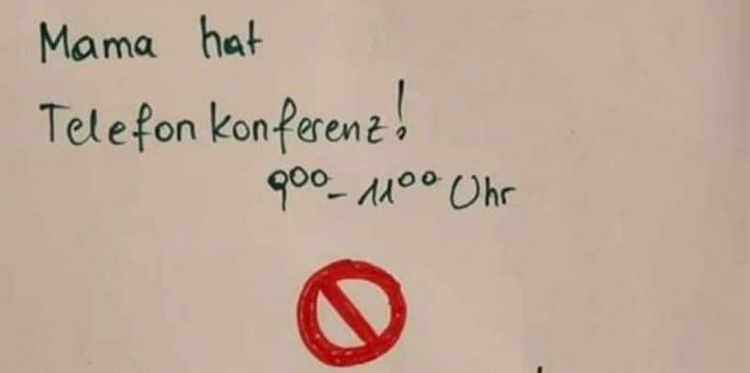 Mama hat
Telefonkonferenz!
9⁰⁰ - 11⁰⁰ Uhr